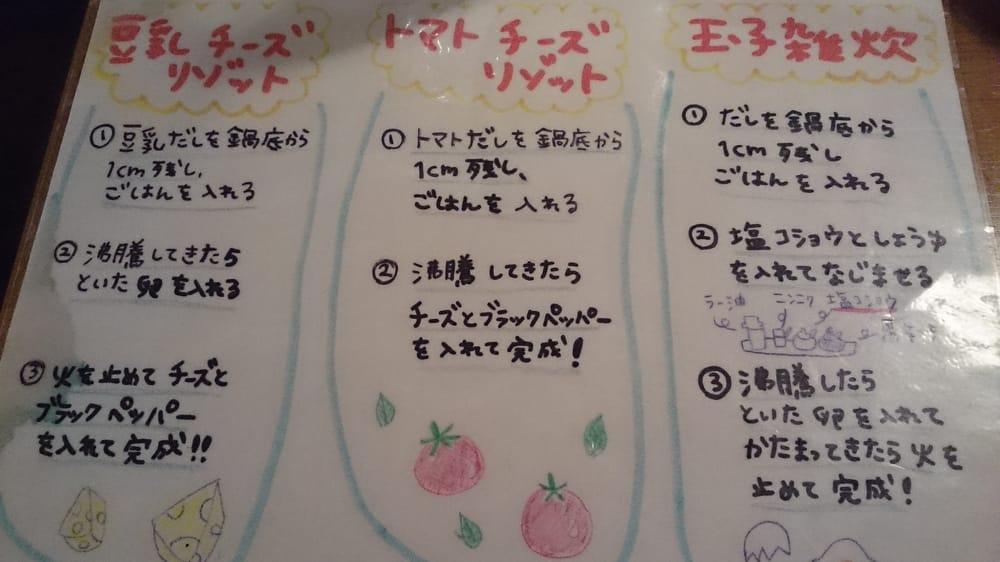 豆乳 チーズ
リゾット
① 豆乳だしを鍋底から
1cm 残し、
ごはんを 入れる
② 沸騰してきたら
といた 卵を入れる
③ 火を止めて チーズと
ブラック ペッパー
を入れて 完成!!
トマト チーズ
リゾット
① トマトだしを 鍋底から
1cm 残し、
ごはんを 入れる
② 沸騰 してきたら
チーズとブラックペッパー
を入れて 完成!
玉子雑炊
① だしを鍋底から
1cm 残し
ごはんを入れる
② 塩コショウとしょうゆ
を入れてなじませる
ラー油 ニンニク 塩コショウ
③ 沸騰したら
といた 卵を入れて
かたまってきたら火を
止めて 完成!